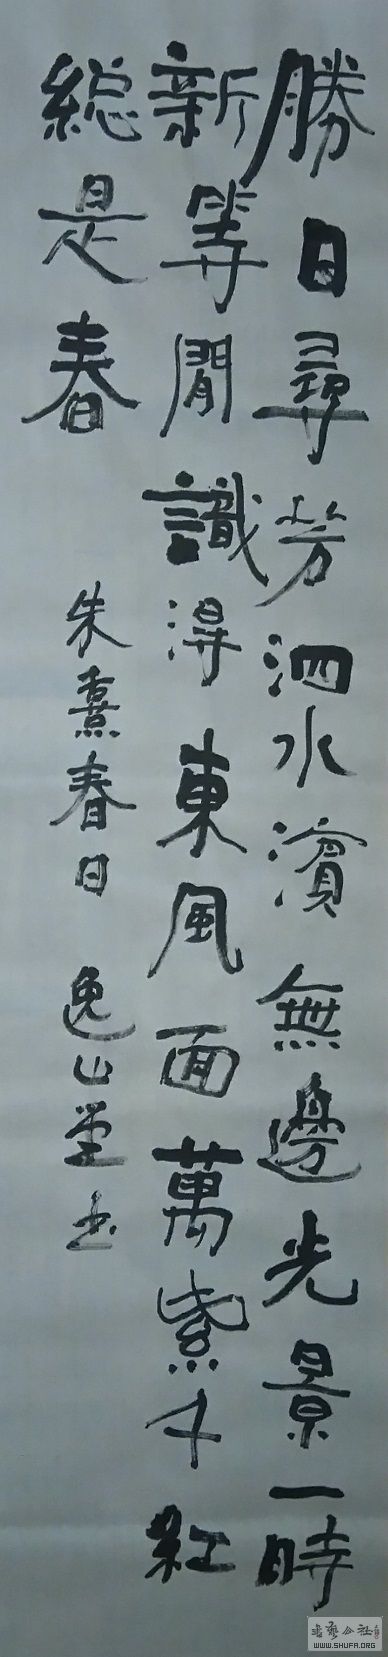 勝日尋芳泗水濱無邊光景一時
新等閒識得東風面萬紫千紅
總是春
朱熹春日 逸山堂书
书艺公社
WWW.SHUFA.ORG